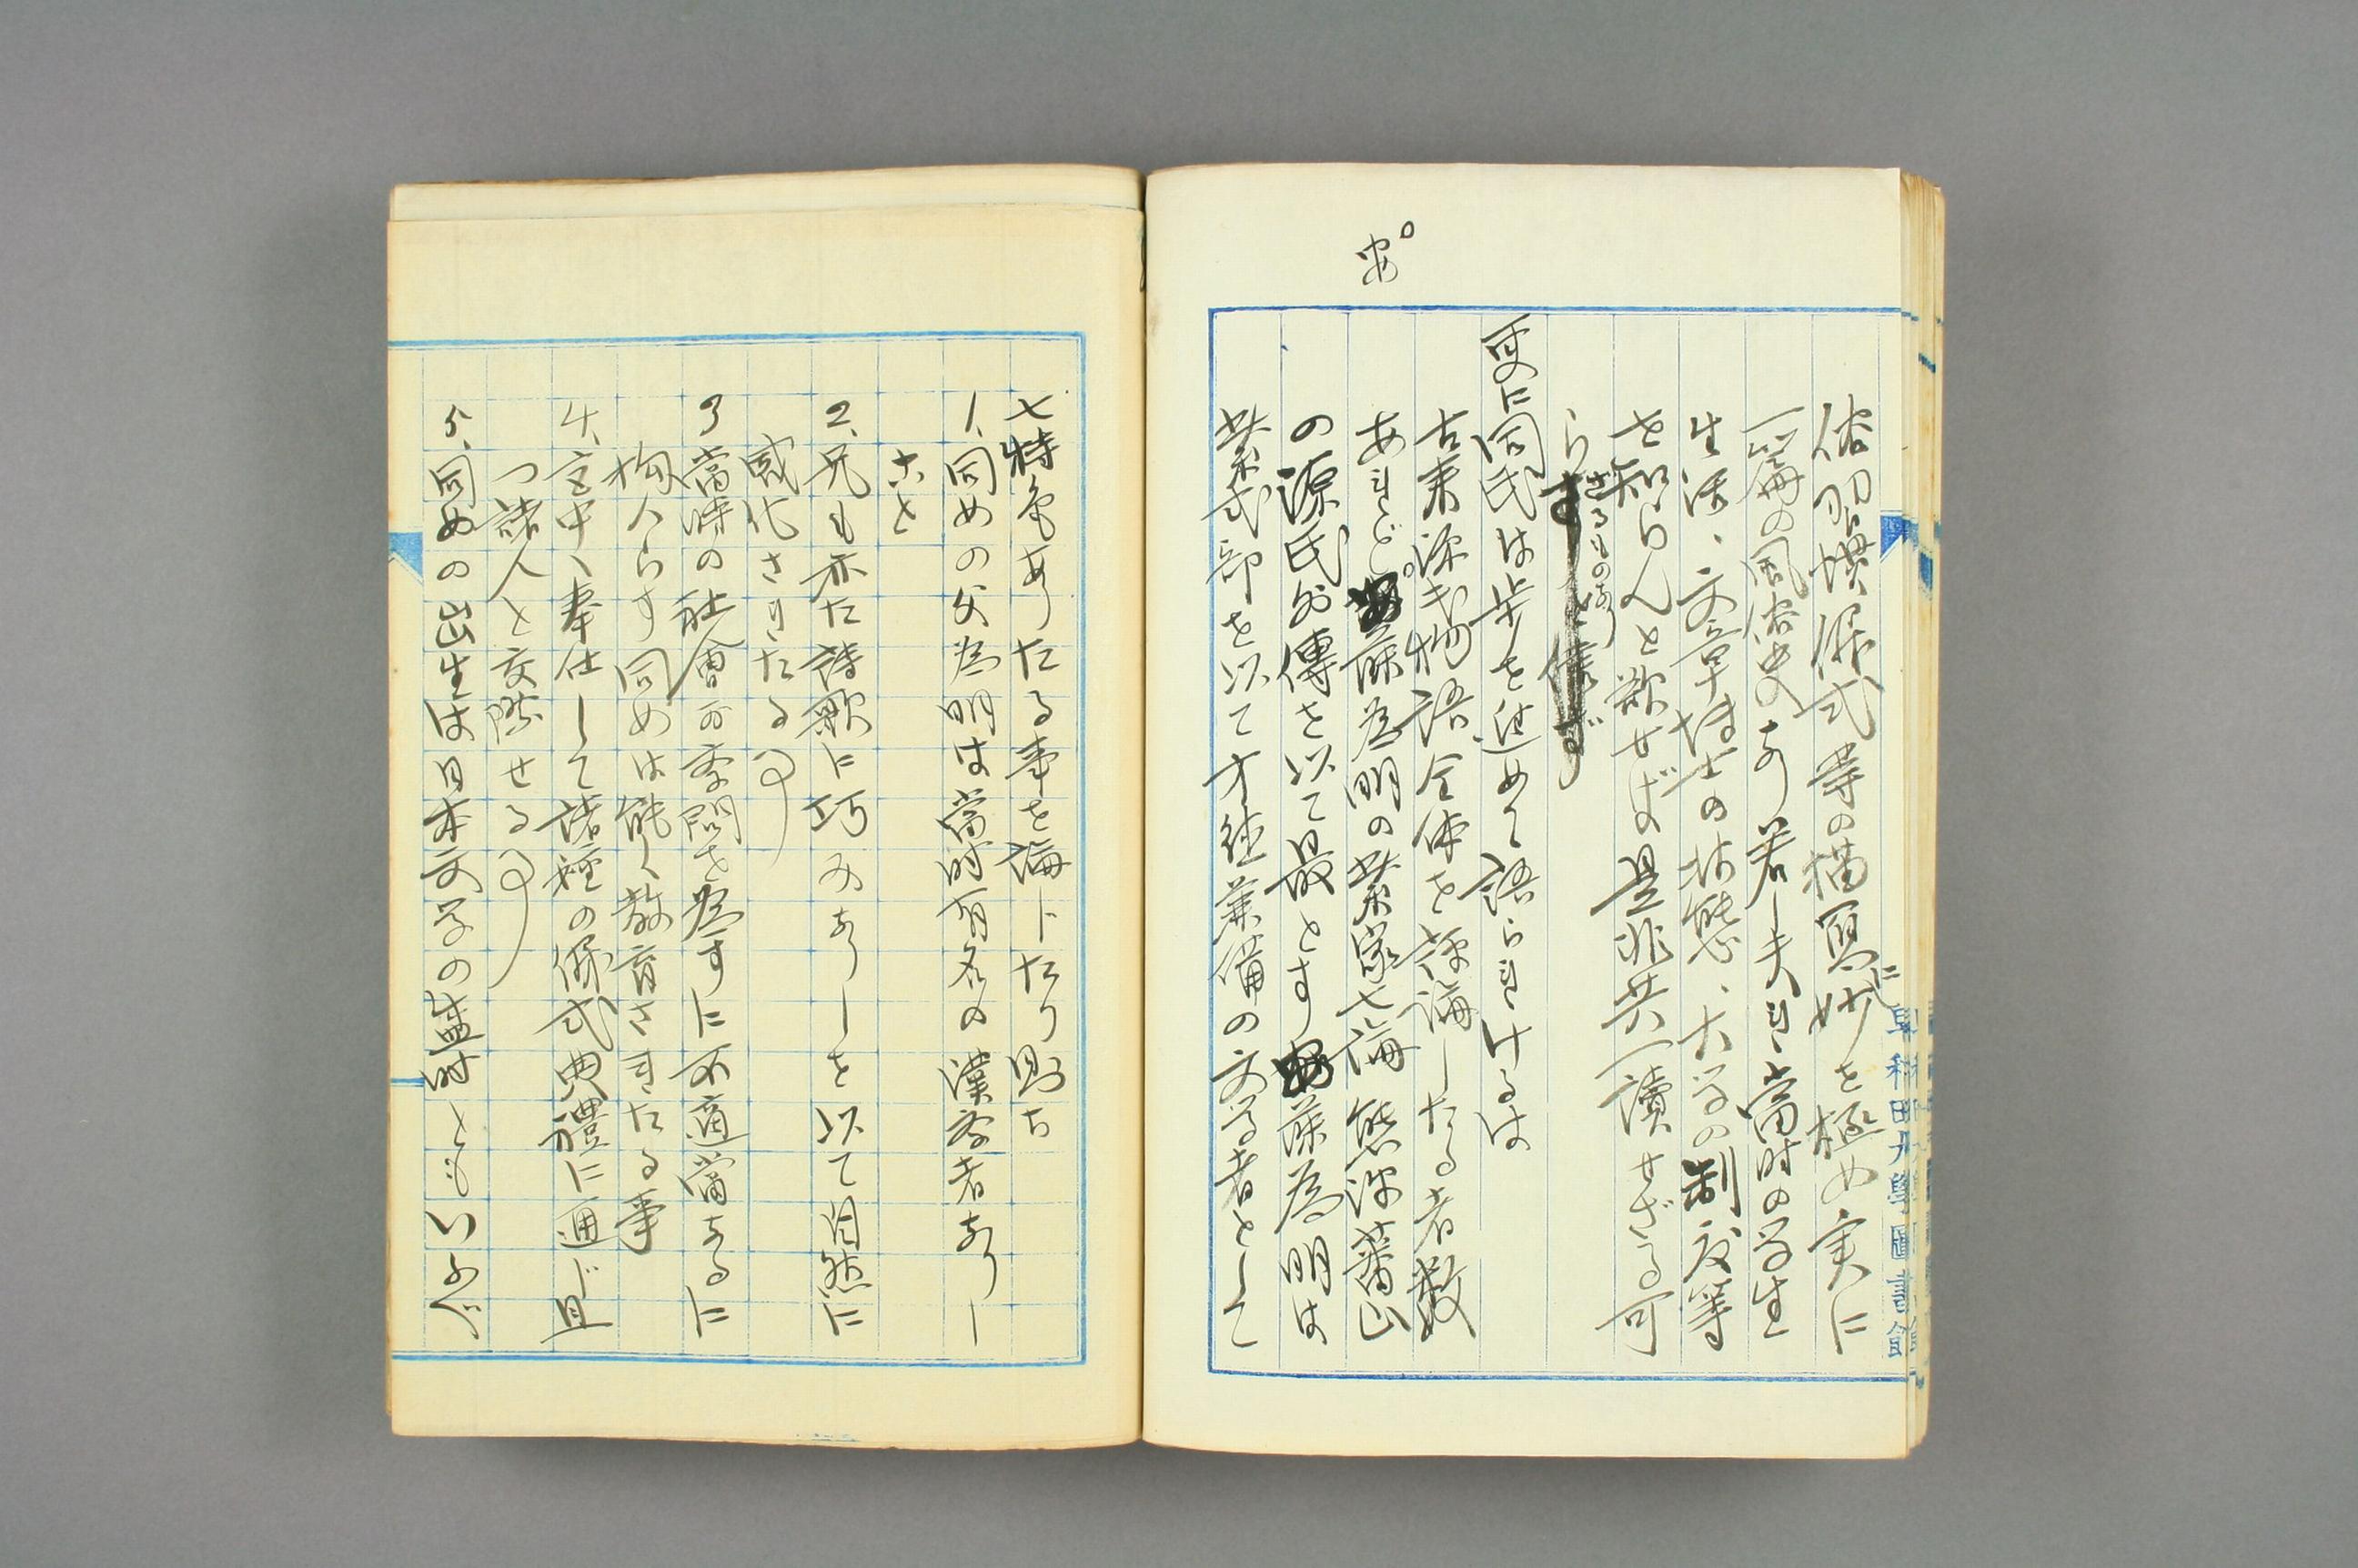 俗習慣儀式等の描冩に妙を極め実に
一篇の風俗史なり若し夫れ當時の学生
生活、文章博士の状態、大学の制度等
を知らんと欲せば是非共一讀せざる可
らざるものなり
更に同氏は歩を進めて語られけるは
古来源氏物語全体を評論したる者数
あれど安藤為明の紫家七論熊沢蕃山
の源氏外傳を以て最とす安藤為明は
紫式部を以て才徳兼備の文学者として
安
早稲田大學圖書館
七特色ある事を論じたり即ち
1、同女の父為明は當時有名の漢学者なりし
こと
2、兄も亦た詩歌に巧みなりしを以て自然に
感化されたる事
3 當時の社會が学問を為すに不適當なるに
拘らす同女は能く教育されたる事
4、宮中へ奉仕して諸種の儀式典禮に通じ且
つ諸人と交際せる事
5、同女の出生は日本文学の盛時ともいふべ